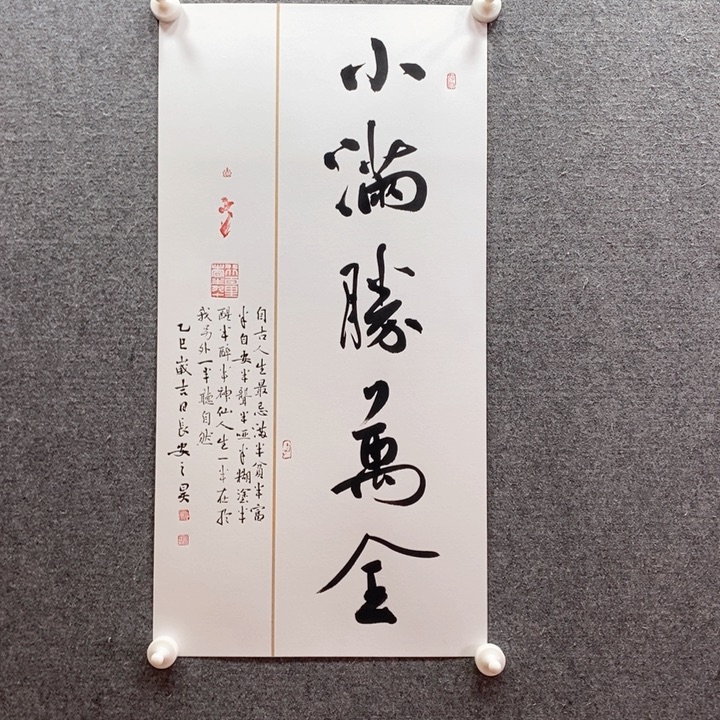 小滿勝萬全
自古人生最忌滿半貧半富
半自安半聾半啞半糊塗半
醒半醉半神仙人生一半在於
我另外一半聽自然
乙巳歲吉日長安之昊